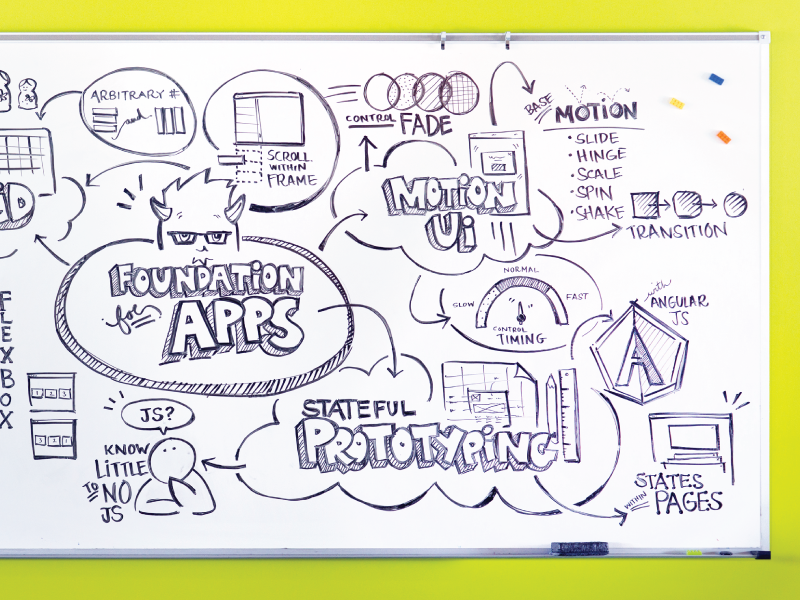 ARBITRARY #
and
SCROLL
WITHIN
FRAME
CONTROL FADE
BASE MOTION
• SLIDE
• HINGE
• SCALE
• SPIN
• SHAKE
TRANSITION
MOTION
Ui
FOUNDATION
for APPS
NORMAL
SLOW
FAST
CONTROL
TIMING
with
ANGULAR
JS
A
FLEXBOX
1 2 3
3 2 1
JS?
KNOW
LITTLE
TO NO
JS
STATEFUL
PROTOTYPING
STATES
WITHIN PAGES